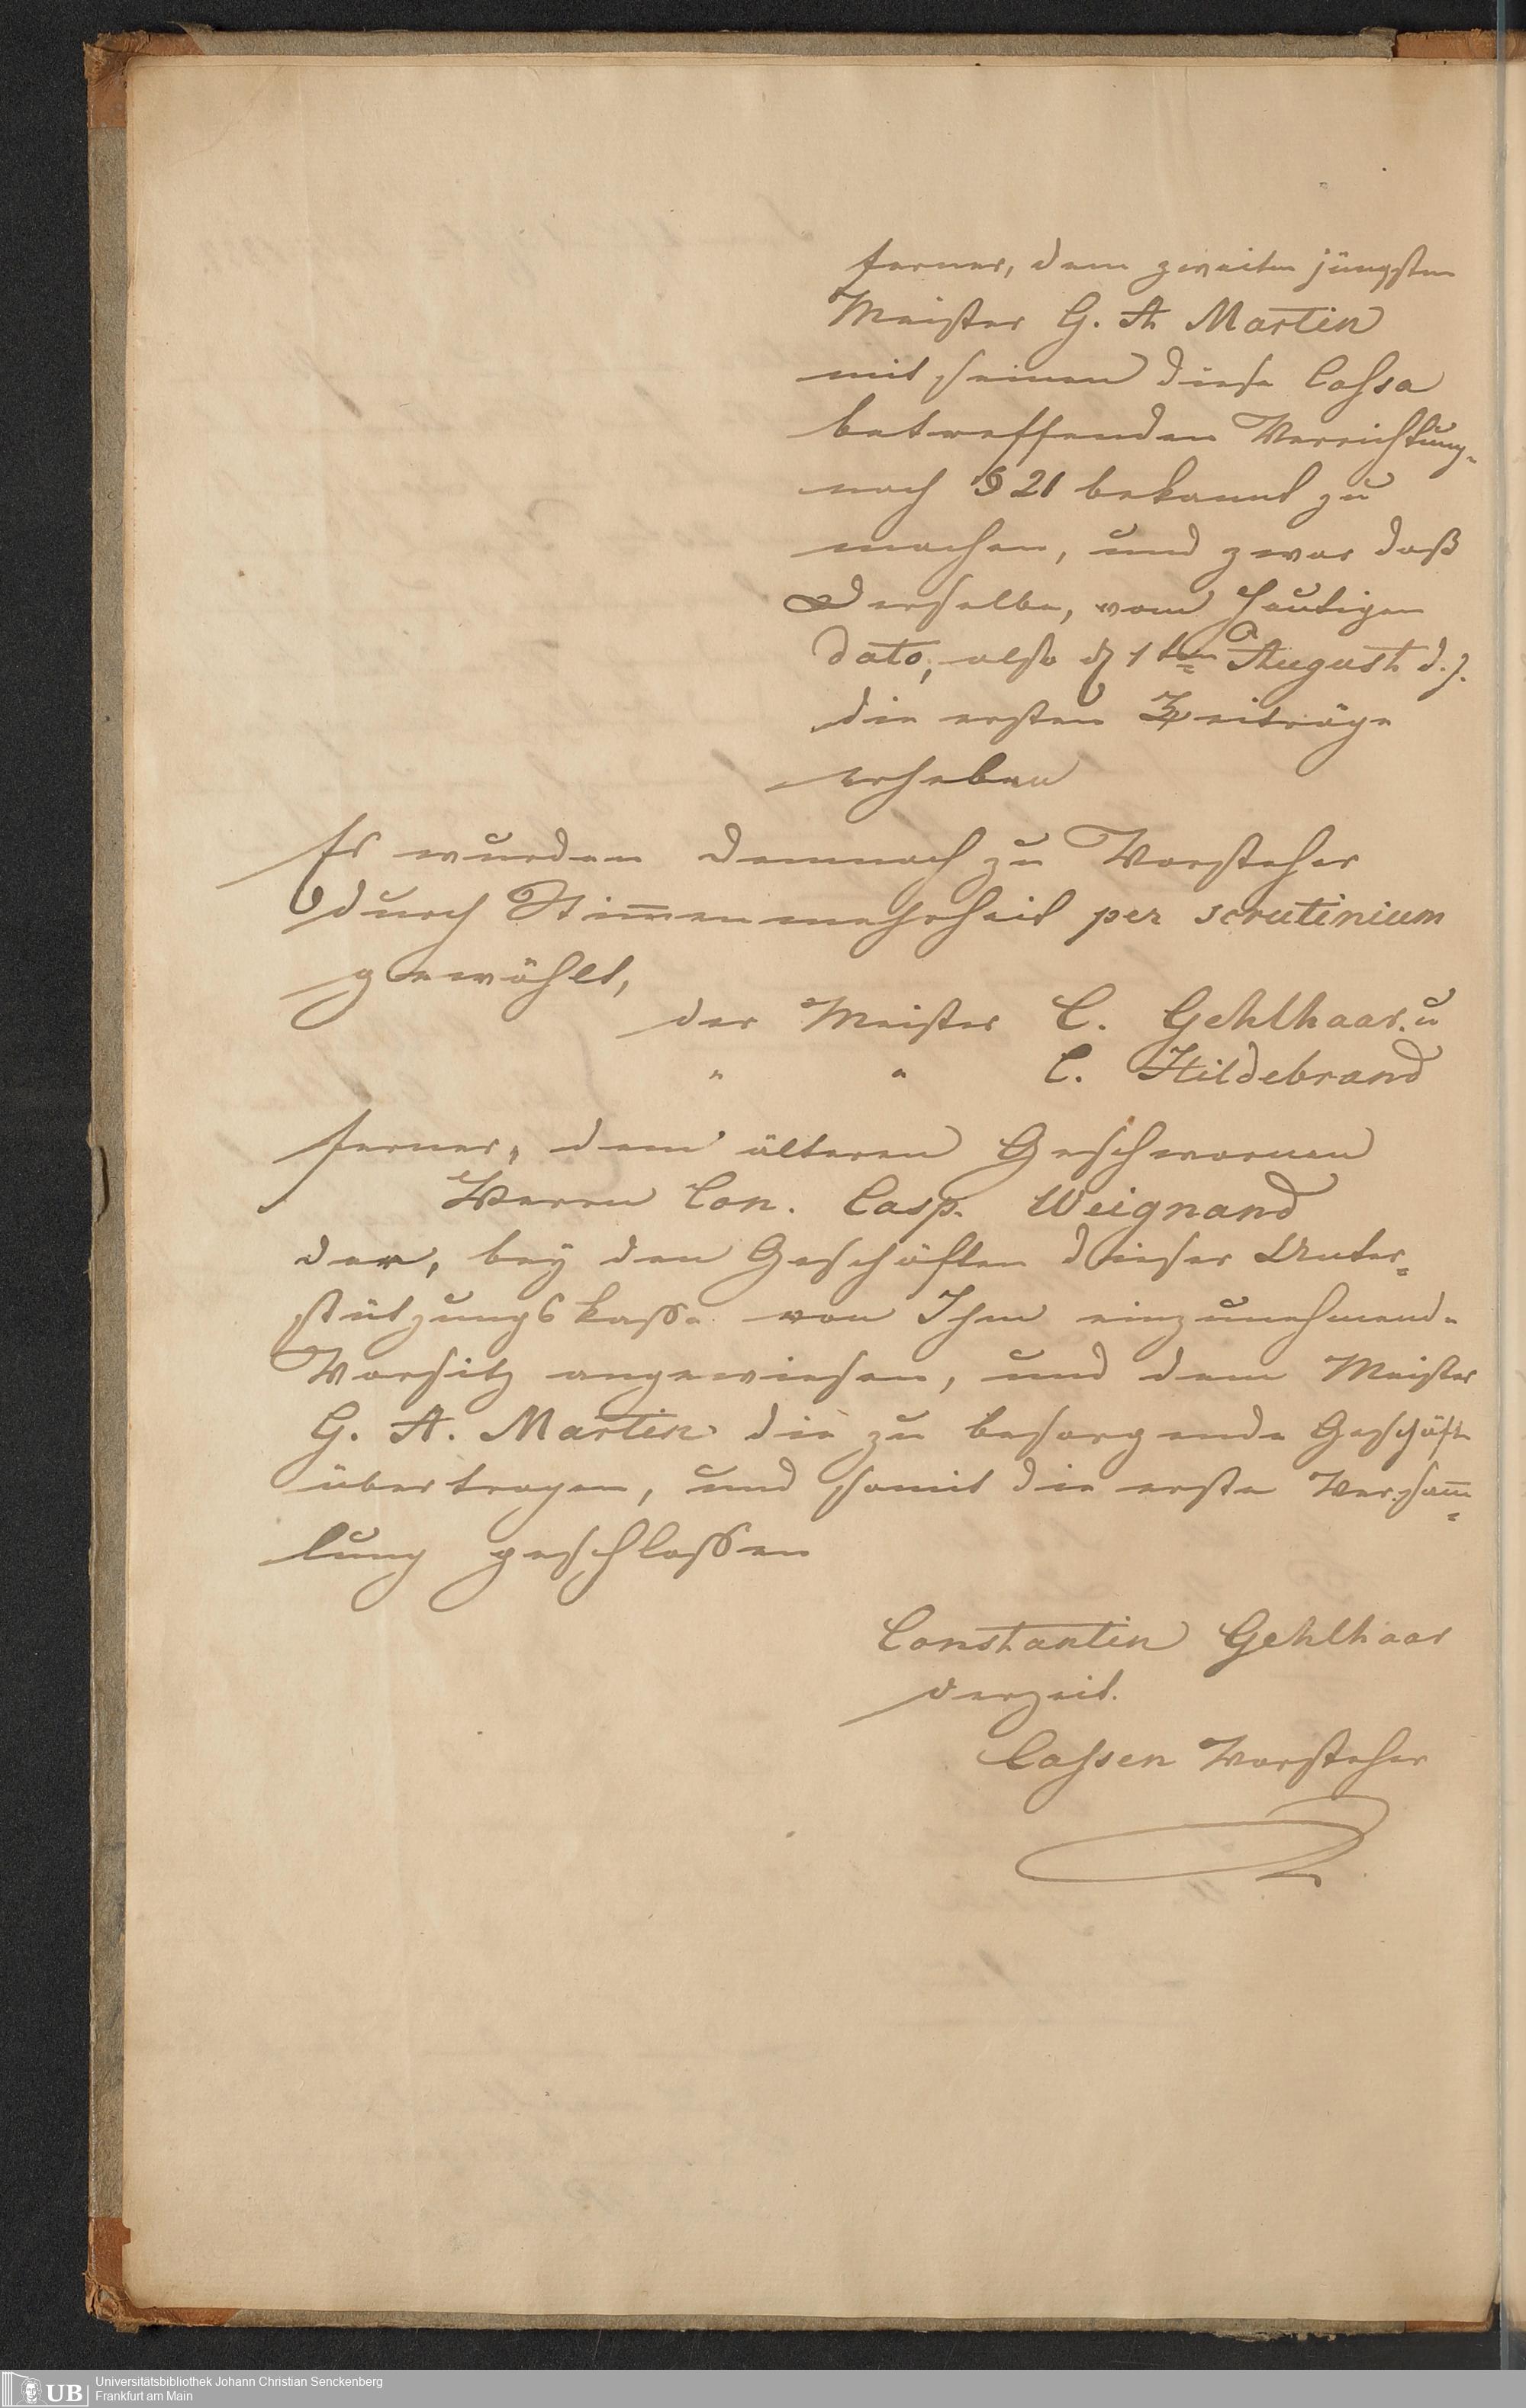 ferner, dem zweiten jüngsten
Meister G. A. Martin
mit seinen diese Cahsa
betreffenden Verrichtung-
nach § 21 bekannt zu
machen, und zwar daß
Derselbe, vom heutigen
dato, also d 1ten August d. J.
die ersten Beiträge
erheben
Es wurden demnach zu Vorsteher
durch Stim̅enmehrheit per scrutinium
gewählt,
der Meister C. Gehlhaar. u
" " C. Hildebrand
ferner, dem älteren Geschwornen
Herrn Con. Casp. Weignand
der, bey den Geschäften dieser Unter-
stützungskasse von Ihm einzunehmende
Vorsitz angewiesen, und dem Meister
G. A. Martin die zu besorgende Geschäfte
übertragen, und somit die erste Versam̅-
lung geschlossen
Constantin Gehlhaar
derzeit.
Cahsen Vorsteher
UB Universitätsbibliothek Johann Christian Senckenberg
Frankfurt am Main